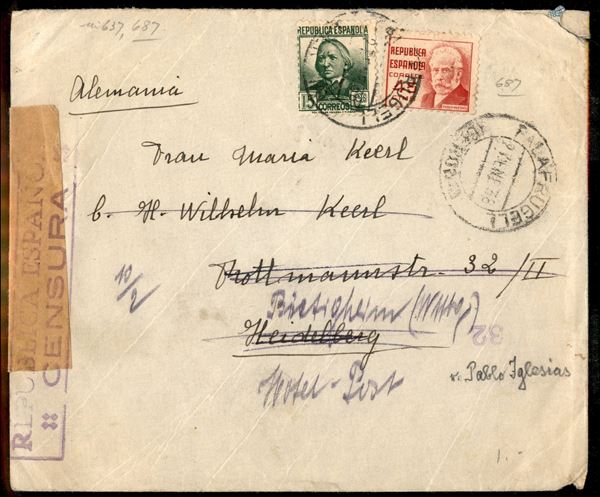 Mi 637, 687
REPUBLICA ESPAÑOLA
15 Cts
CORREOS
REPUBLICA
ESPAÑOLA
CORREOS
687
Alemania
PALAFRUGELL
Frau Maria Keerl
b. H. Wilhelm Keerl
Rottmannstr. 32/II
10/2
Bietigheim (Wttbg)
Heidelberg
32
Hotel-Post
v. Pablo Iglesias
REPUBLICA ESPAÑOLA
CENSURA
1.-